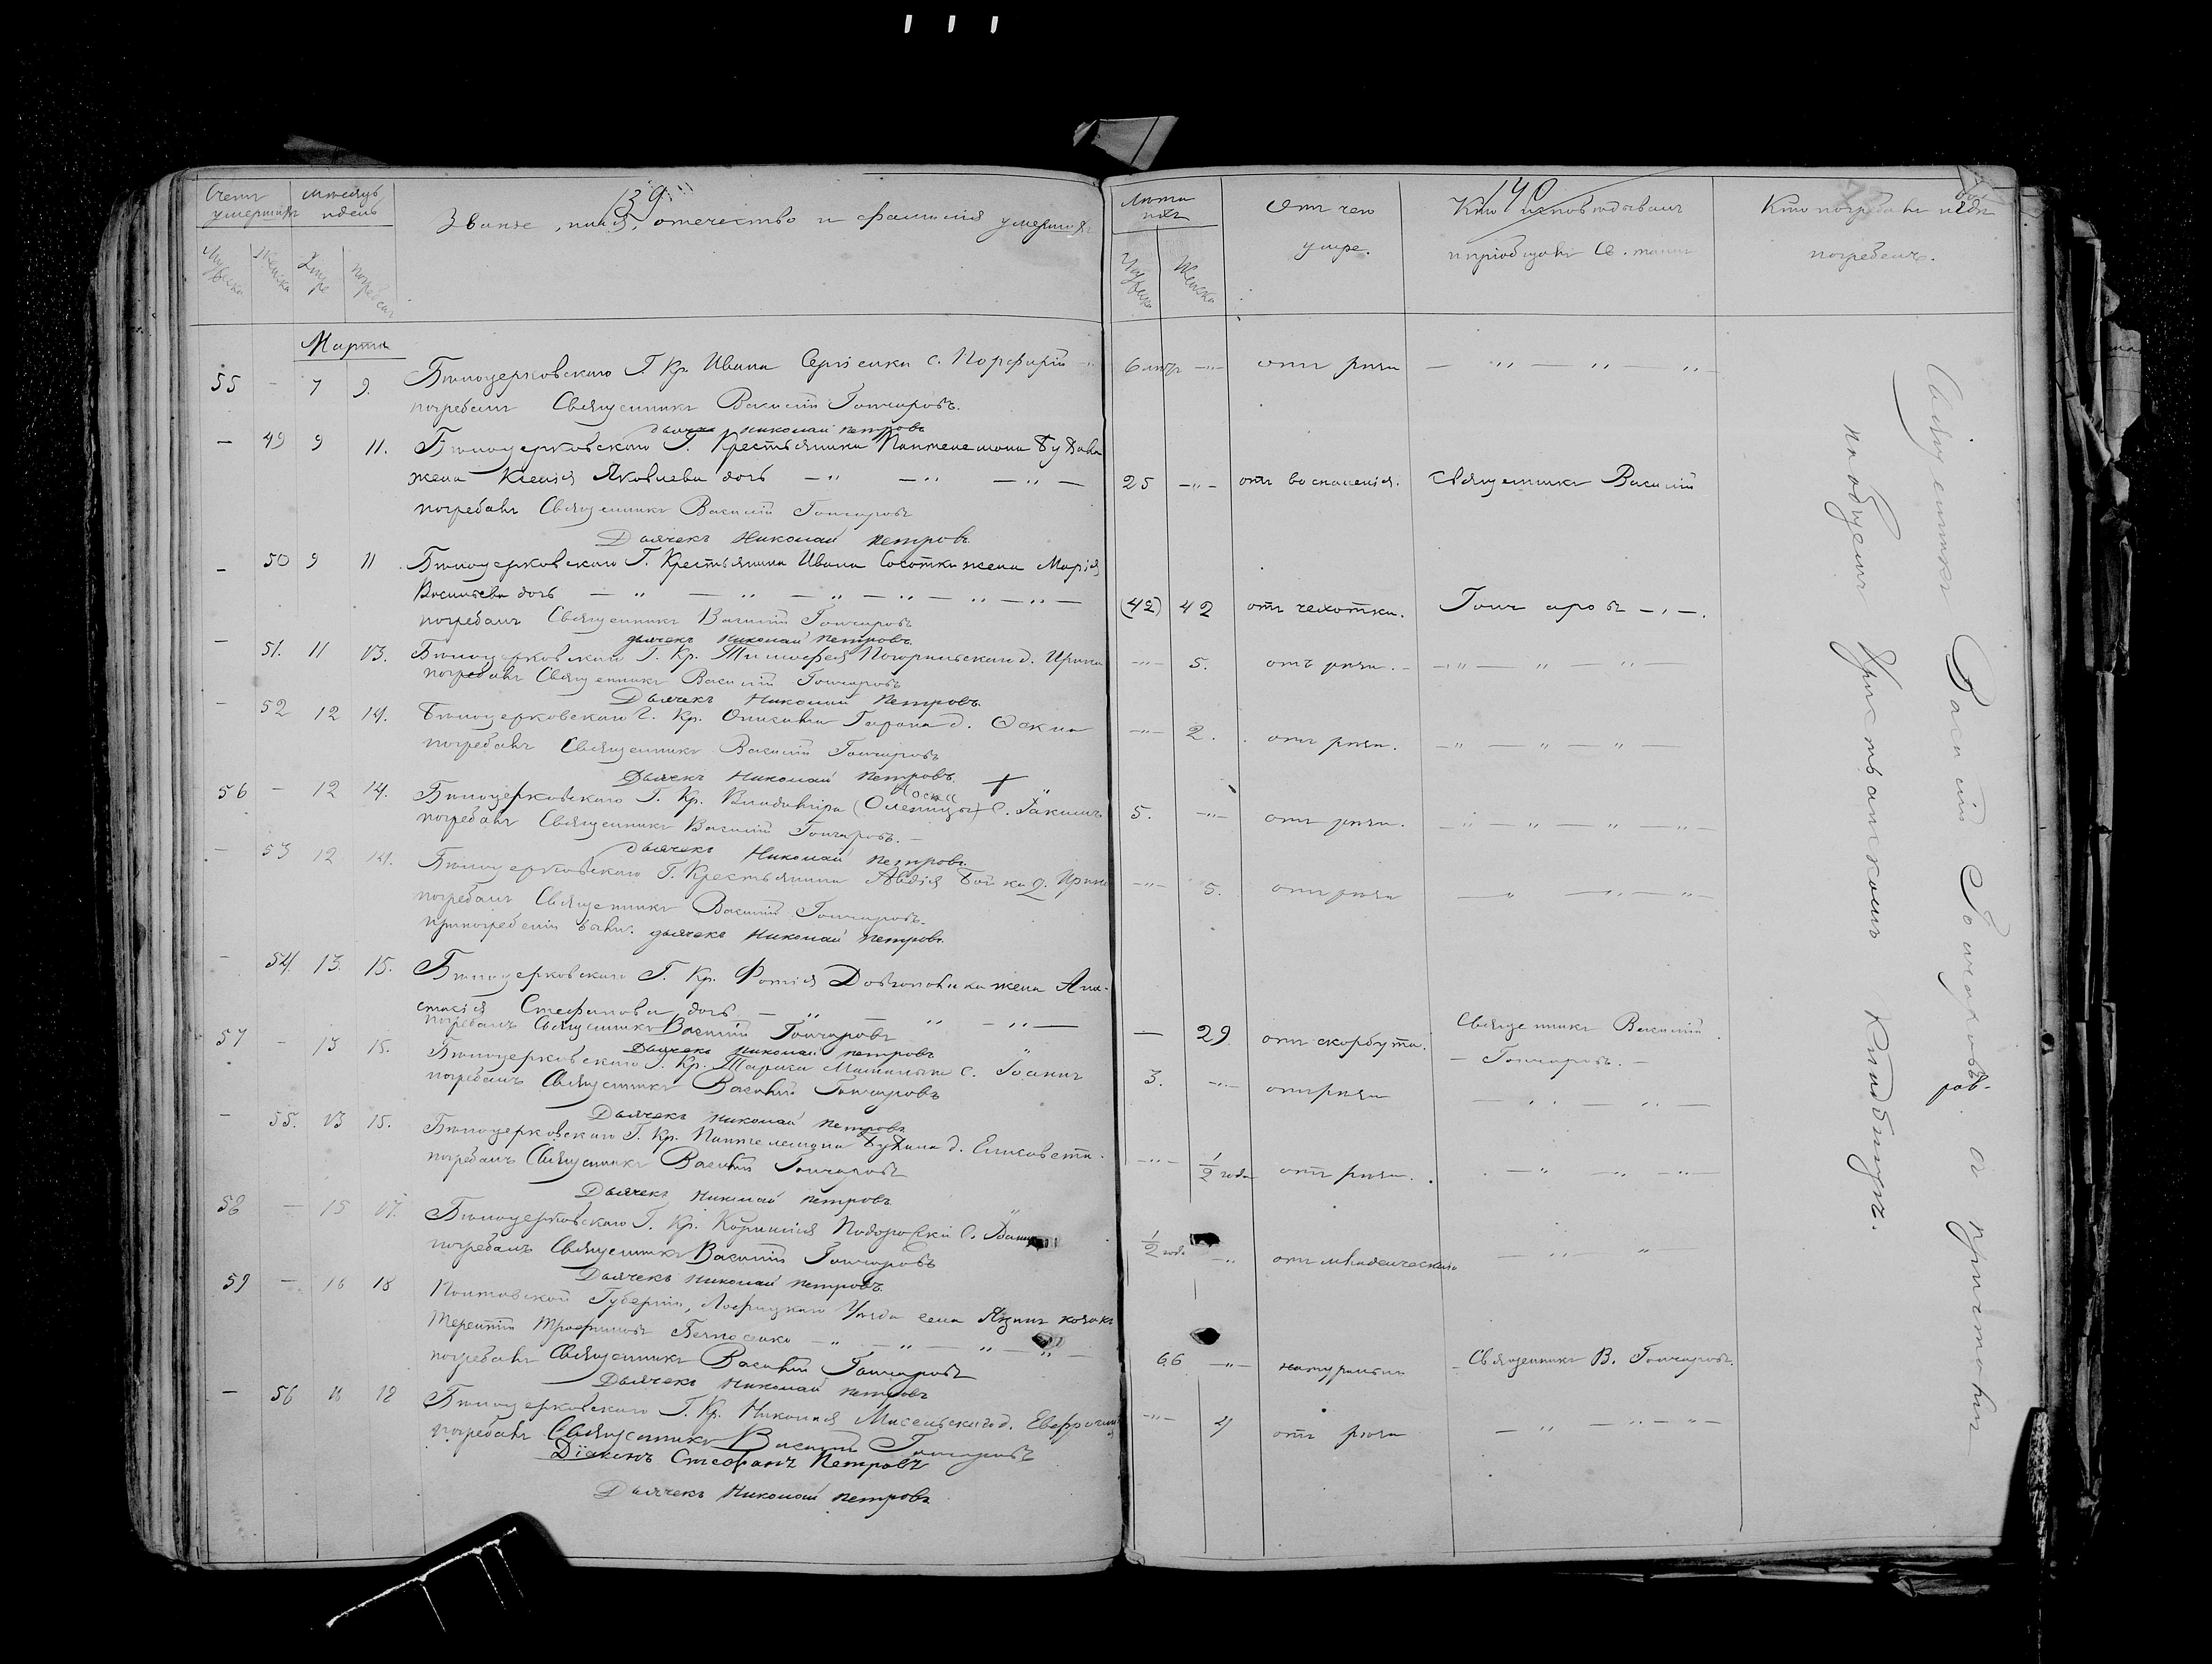 139
Счетъ умершихъ
Мѣсяцъ и день
Званіе, имя, отчество и фамилія умершихъ
Мужеска
Женска
Умре
Погребенъ
Марта
55 — 7 9. Бѣлоцерковскаго Г. Кр. Ивана Сергіенки с. Порфирій
погребалъ Священникъ Василій Гончаровъ.
дьячекъ Николай Петровъ
— 49 9 11. Бѣлоцерковскаго Г. Крестьянина Пантелеимона Будана
жена Ксенія Яковлева дочь — " — " — " —
погребалъ Священникъ Василій Гончаровъ
Дьячекъ Николай Петровъ
— 50 9 11 Бѣлоцерковскаго Г. Крестьянина Ивана жена Марія
Васильева дочь — " — " — " — " — " — " —
погребалъ Священникъ Василій Гончаровъ
дьячекъ Николай Петровъ
— 51. 11 13. Бѣлоцерковскаго Г. Кр. Тимофея Погорильскаго д. Ирина
погребалъ Священникъ Василій Гончаровъ
Дьячекъ Николай Петровъ
— 52 12 14. Бѣлоцерковскаго Г. Кр. Гарана д. Ѳекла
погребалъ Священникъ Василій Гончаровъ
Дьячекъ Николай Петровъ
56 — 12 14. Бѣлоцерковскаго Г. Кр. Владиміра с. Іакимъ
погребалъ Священникъ Василій Гончаровъ. —
дьячекъ Николай Петровъ
— 53 12 14. Бѣлоцерковскаго Г. Крестьянина Авдія Бойка д. Ирина
погребалъ Священникъ Василій Гончаровъ.
при погребеніи былъ. дьячекъ Николай Петровъ
— 54. 13. 15. Бѣлоцерковскаго Г. Кр. Фотія жена Ана-
стасія Стефанова дочь — " — " — " —
погребалъ Священникъ Василій Гончаровъ
Дьячекъ Николай Петровъ
57 — 13 15. Бѣлоцерковскаго Г. Кр. Тараса с. Іоаннъ
погребалъ Священникъ Василій Гончаровъ
Дьячекъ Николай Петровъ
— 55. 13 15. Бѣлоцерковскаго Г. Кр. Пантелеимона Будана д. Елисавета.
погребалъ Священникъ Василій Гончаровъ
Дьячекъ Николай Петровъ
58 — 15 17. Бѣлоцерковскаго Г. Кр. Корнилія с.
погребалъ Священникъ Василій Гончаровъ
Дьячекъ Николай Петровъ
59 — 16 18 Полтавской Губерніи, Лохвицкаго Уѣзда села козакъ
Терентій — " — " — " — " —
погребалъ Священникъ Василій Гончаровъ
Дьячекъ Николай Петровъ
— 56 16 18 Бѣлоцерковскаго Г. Кр. Николая д. Евфросинія
погребалъ Священникъ Василій Гончаровъ
Діаконъ Стефанъ Петровъ
Дьячекъ Николай Петровъ
140
Лѣта
Мужеска
Женска
Отъ чего умре.
Кто исповѣдывалъ и пріобщалъ Св. таинъ
Кто погребалъ и гдѣ погребенъ.
6 — " — отъ рѣзи — " — " — "
25 — " — отъ воспаленія. Священникъ Василій
(42) 42 отъ чехотки. Гончаровъ — " —
— " — 5. отъ рѣзи. — " — " — " —
— " — 2. отъ рѣзи. — " — " — " —
5. — " — отъ рѣзи. — " — " — " — " —
— " — 5. отъ рѣзи — " — " — " —
— 29. отъ скорбута. Священникъ Василій
— Гончаровъ. —
3. — " — отъ рѣзи — " — " —
— " — 1/2 года отъ рѣзи. — " — " — " —
1/2 года — " — отъ младенческаго — " — "
66 — " — натурально Священникъ В. Гончаровъ.
— " — 4 отъ рѣзи — " — " — " —
Священникъ Василій Гончаровъ. а причтовъ
на общемъ Христьанскомъ Кладбищѣ.